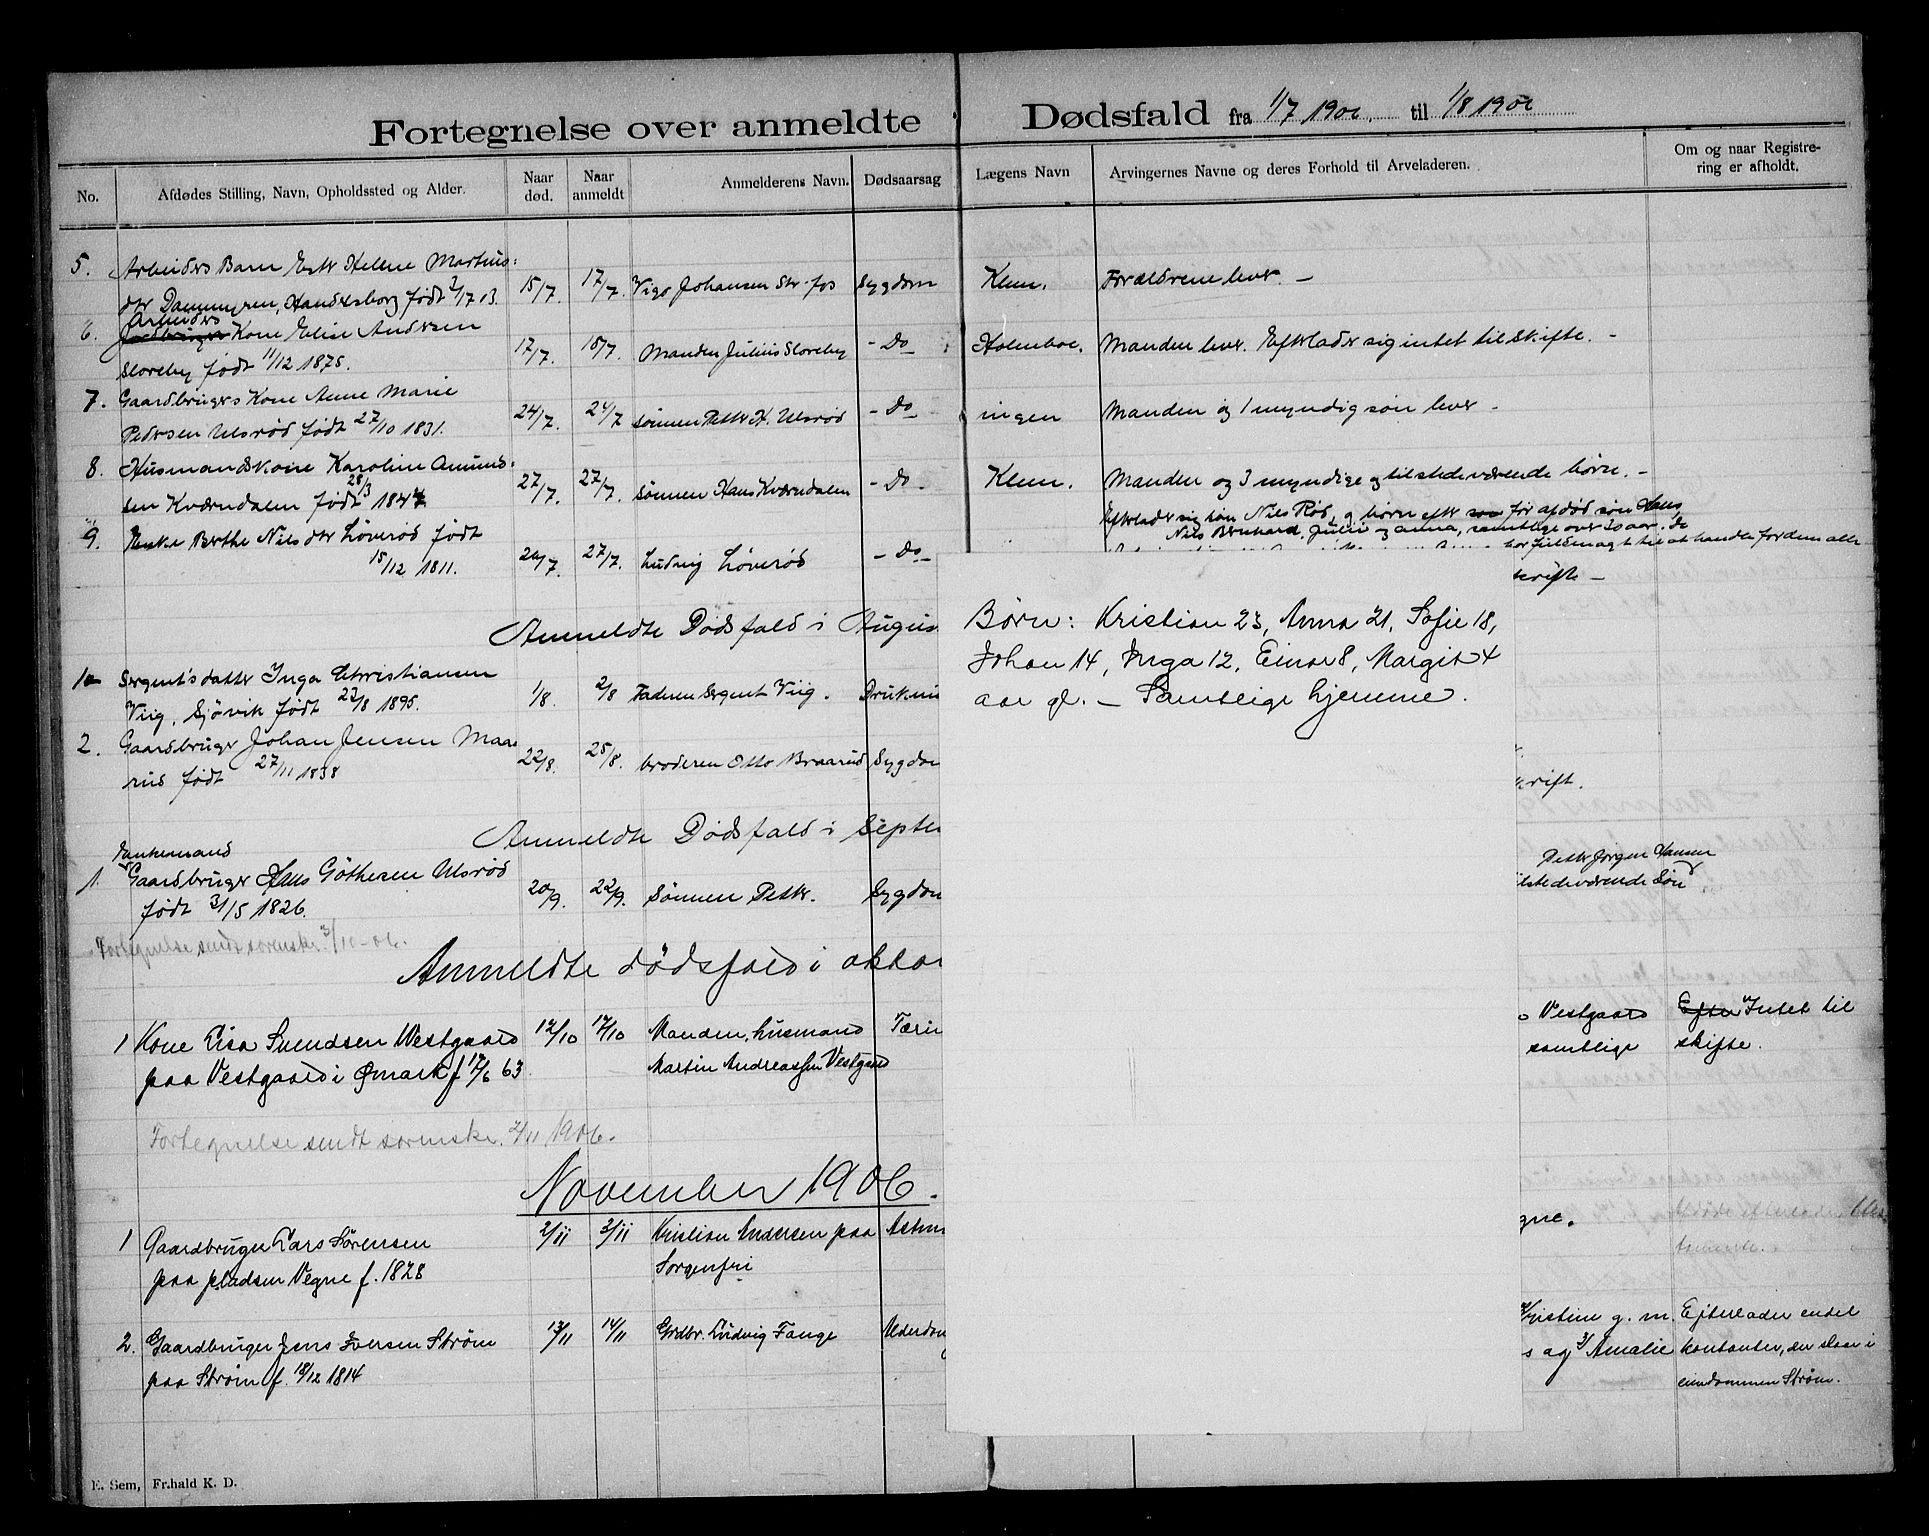 Fortegnelse over anmeldte Dødsfald fra 1/7 1906 til 1/8 1906
No. Afdødes Stilling, Navn, Opholdssted og Alder. Naar død. Naar anmeldt Anmelderens Navn. Dødsaarsag Lægens Navn Arvingernes Navne og deres Forhold til Arveladeren. Om og naar Registrering er afholdt.
5. Arbeiders Barn Ester Helene Martins-
dtr Dammyren, født 15/7. 17/7. Vigo Johansen Str.fos Sygdom Klem. Forældrene lever. -
Arbeiders
6. Kone Elise Andersen
Sloreby født 11/12 1878. 17/7. 18/7. Manden Julius Sloreby - Do Holmboe. Manden lever. Efterlader sig intet til skifte. -
7. Gaardbrugers Kone Anne Marie
Pedersen Ulsrød født 27/10 1831. 24/7. 24/7 Sønnen Petter H. Ulsrød - Do ingen Manden og 1 myndig søn lever -
8. Husmandskone Karoline Amund-
sen Kværndalen født 28/3 1844 27/7. 27/7. Sønnen Hans Kværndalen - Do - Klem. Manden og 3 myndige og tilstedeværende børn. -
9. Enke Berthe Nilsdtr Løverød født
15/12 1811. 26/7. 27/7. Ludvig Løverød - Do -
Efterlader sig søn Nils Rød, og børn efter før afdød søn Hans
Nils Bernhard, Julie og Anna, samtlige over 20 aar. de
har fuldmagt til at handle for dem alle
skifte -
Anmeldte Dødsfald i Augus
1 Sergent's datter Inga Christiansen
Viig, Sjøvik født 22/8 1895. 1/8. 2/8 Faderen Sergent Viig. Drukni
2. Gaardbruger Johan Jensen Maa
rud født 27/11 1838 22/8. 25/8. broderen Otto Braarud Sygdom
skrift.
Anmeldte Dødsfald i Septe
Enkemand
1. Gaardbruger Hans Göthesen Ulsrød
født 31/5 1826. 20/9. 22/9. Sønnen Petter. Sygdom
Petter Jørgen Hansen
ilstedeværende Søn
Fortegnelse sendt sorenskr. 3/10-06.
Anmeldte dødsfald i okto
1 Kone Lisa Svendsen Westgaard 12/10 17/10 Manden, husmand Tærin
paa Vestgaard i Ømark f. 17/6 63 Martin Andreassen Vestgaard
Vestgaard Efter Intet til
samtlige skifte.
Fortegnelse sendt sorenskr. 2/11 1906.
November 1906.
1 Gaardbruger Lars Sørensen 2/11 3/11 Kristian Andersen paa Astm
paa pladsen Vegne f. 1828 Sorgenfri
gne. Afdøde efterlader
2. Gaardbruger Jens Iversen Strøm 13/11 14/11 Grdbr. Ludvig Tange Alderdom
paa Strøm f. 18/12 1814
Kristine g. m. Efterlader endel
s og 3/ Amalie kontanter, der staar i
eiendommen Strøm.
Børn: Kristian 23, Anna 21, Sofie 18,
Johan 14, Inga 12, Einar 8, Margit 4
aar gl. - Samtlige hjemme.
E. Sem, Fr.hald K. D.